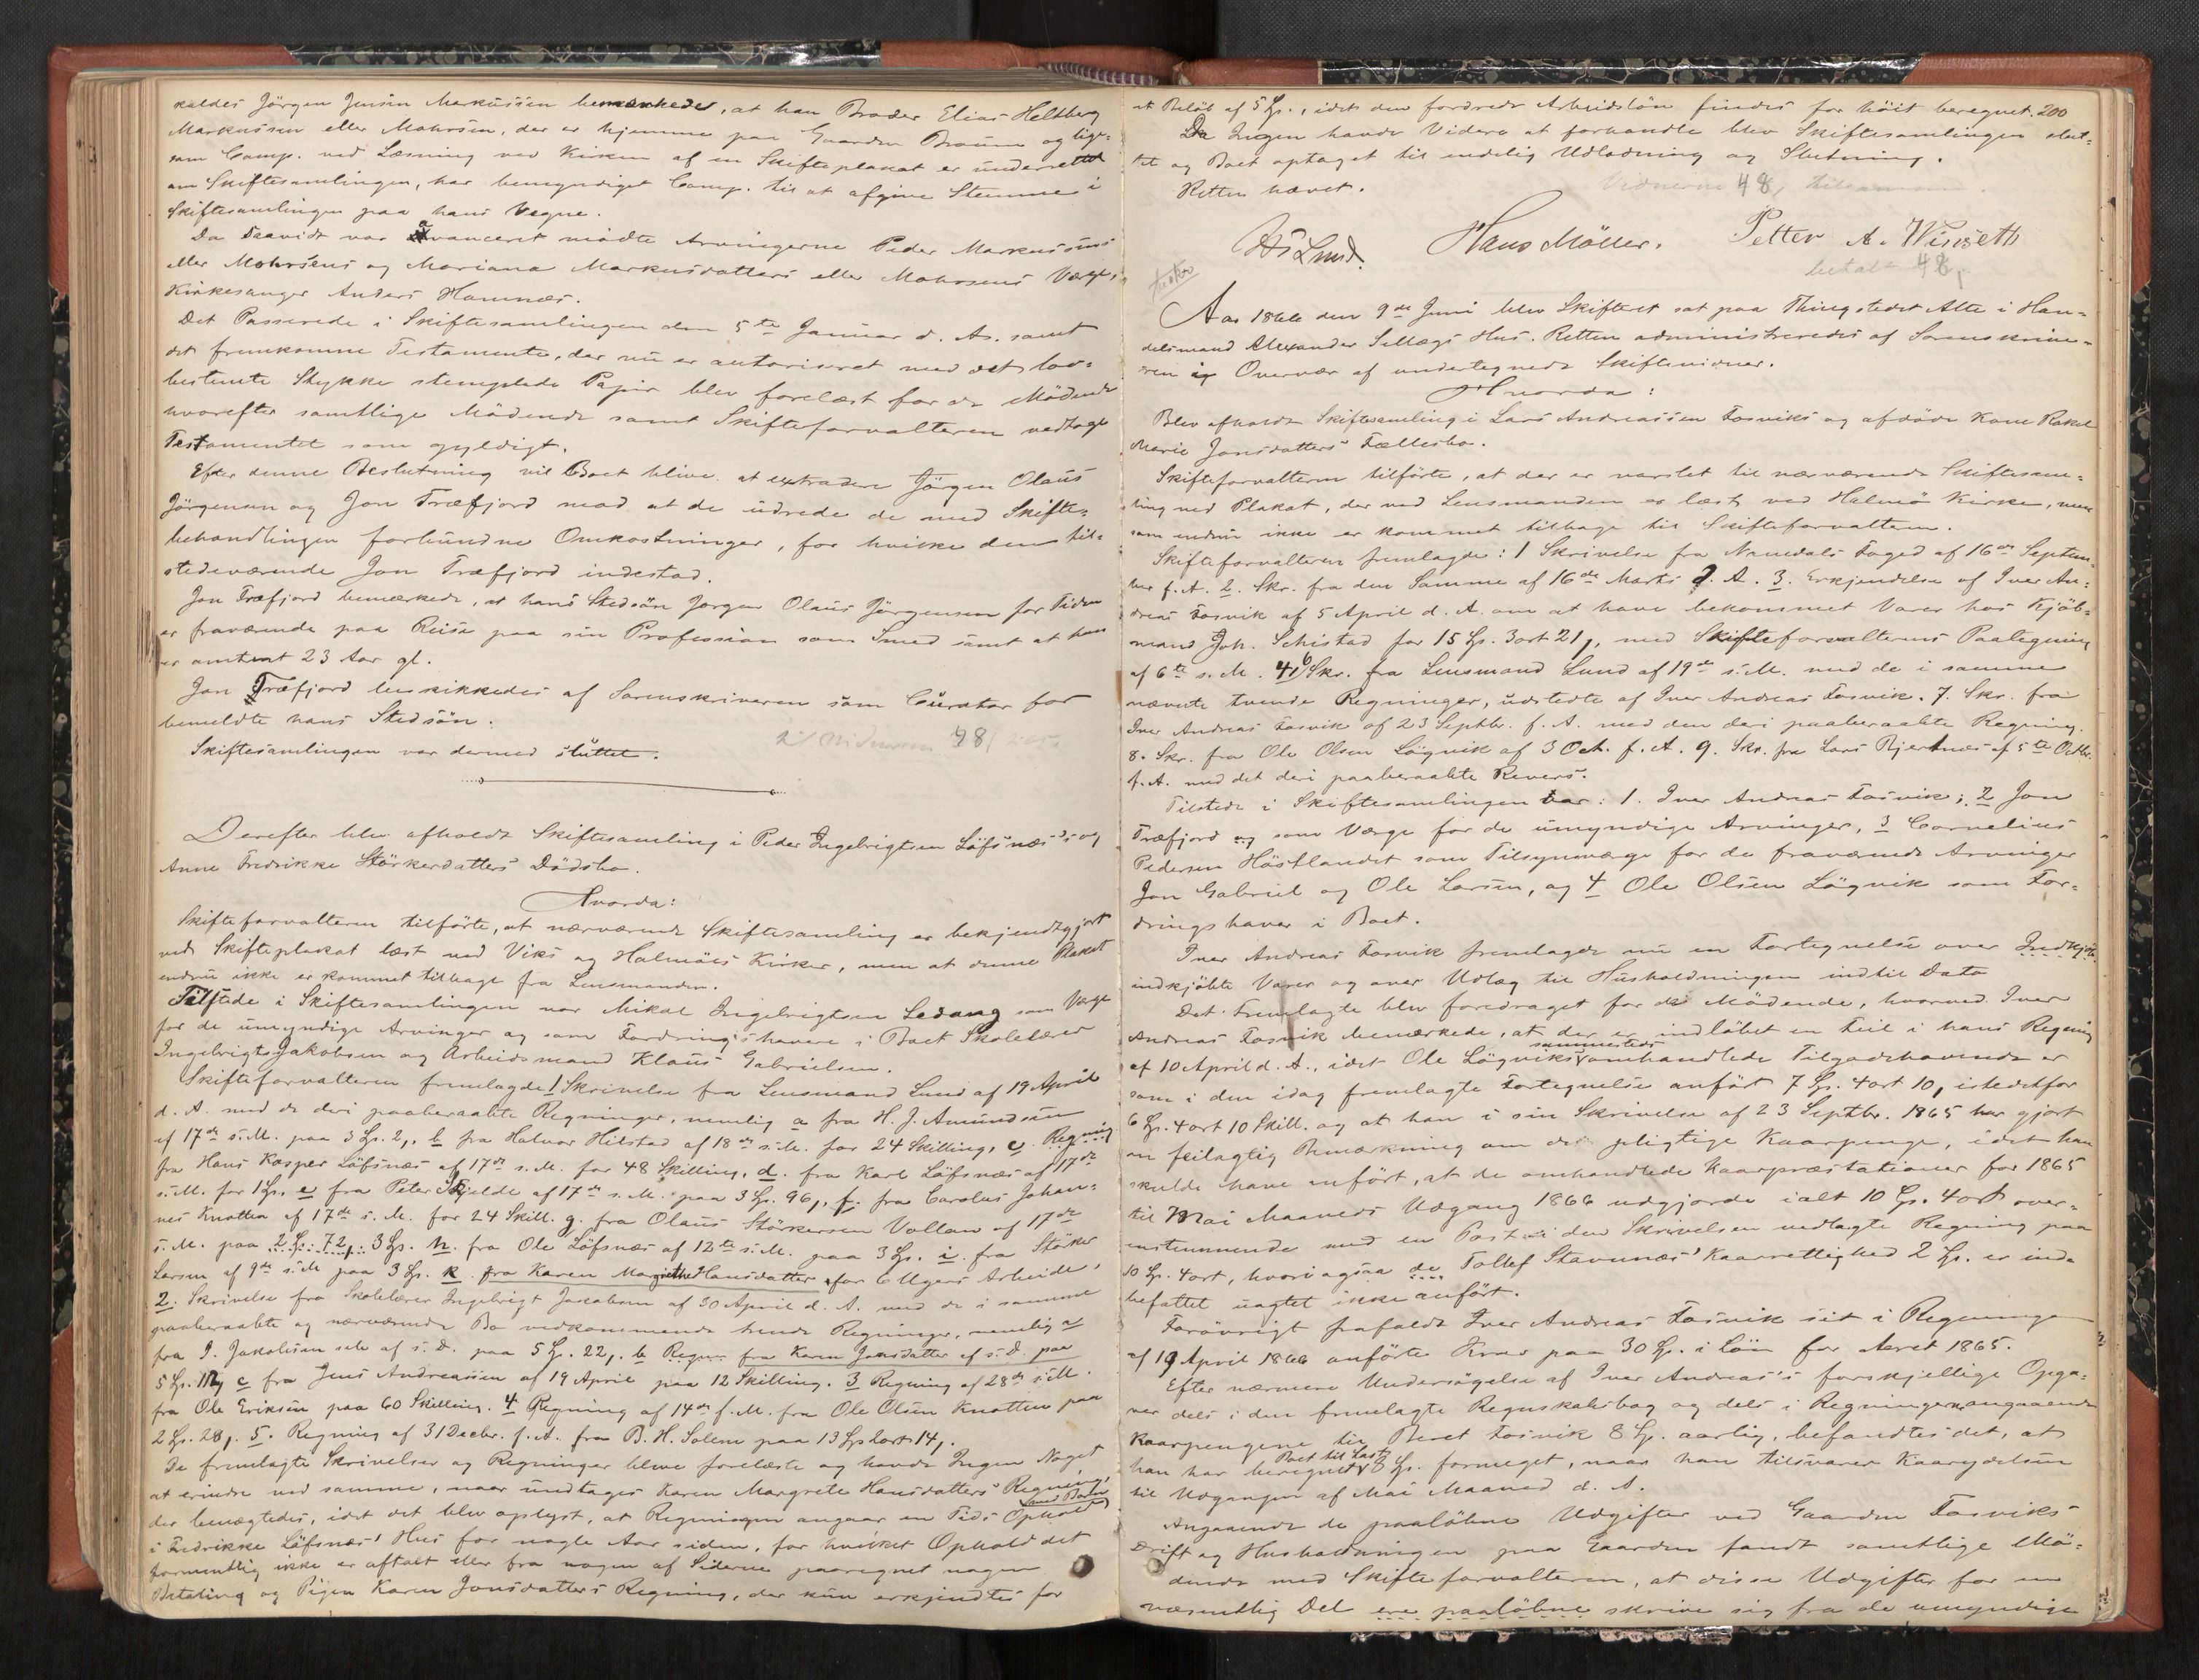 kaldes Jörgen Jensen Markussen bemærkede, at han Broder Elias Heltberg
Markussen eller Mohrsen, der er hjemme paa Gaarden Braum og lige=
som Comp. ved Læsning ved Kirken af en Skifteplakat er underrettet
om Skiftesamlingen, har bemyndiget Comp. til at afgive Stemme i
Skiftesamlingen paa hans Vegne.
Da Saavidt var avanceret mödte Arvingerne Peder Markussens
eller Mohrsens og Mariana Markusdatters eller Mohrsens Værge,
Kirkesanger Anders Hamnæs.
Det Passerede i Skiftesamlingen den 5te Januar d. As. samt
det fremkomne Testamente, der nu er autoriseret med det lov=
bestemte Stykke stemplede Papir blev forelæst for de Mödende
hvorefter samtlige Mödende samt Skifteforvalteren vedtoge
Testamentet som gyldigt.
Efter denne Beslutning vil Boet blive at extradere Jörgen Olaus
Jörgensen og Jon Træfjord mod at de udrede de med Skifte=
behandlingen forbundne Omkostninger, for hvilke den til=
stedeværende Jon Træfjord indestod.
Jon Træfjord bemærkede, at hans Stedsön Jörgen Olaus Jörgensen for Tiden
er fraværende paa Reise paa sin Profession som Smed samt at han
er omtrent 23 Aar gl.
Jon Træfjord beskikkedes af Sorenskriveren som Curator for
bemeldte hans Stedsön.
Skiftesamlingen var dermed sluttet.
til Vidnerne 48
Derefter blev afholdt Skiftesamling i Peder Ingebrigtsen Löfsnæs's og
Anne Fredrikke Störkersdatters Dödsbo.
Hvorda:
Skifteforvalteren tilförte, at nærværende Skiftesamling er bekjendtgjort
ved Skifteplakat læst ved Viks og Halmöes Kirker, men at denne Plakat
endnu ikke er kommet tilbage fra Lensmanden.
Tilstede i Skiftesamlingen var Mikal Ingebrigtsen Ledang som Værge
for de umyndige Arvinger og som Fordringshavere i Boet Skolelærer
Ingebrigt Jakobsen og Arbeidsmand Klaus Gabrielsen.
Skifteforvalteren fremlagde 1 Skrivelse fra Lensmand Lund af 19 April
d. A. med de deri paaberaabte Regninger, nemlig a fra H. J. Amundsen
af 17de s. M. paa 3 Sp. 2, b fra Halvor Hilstad af 18de s. M. for 24 Skilling, c. Regning
fra Hans Kasper Löfsnæs af 17de s. M. for 48 Skilling, d. fra Karl Löfsnæs af 17de
s. M. for 1 Sp. e fra Peter Skjelde af 17de s. M. paa 3 Sp. 96, f. fra Carolus Johan=
nes Knotten af 17de s. M. for 24 Skill. g. fra Olaus Störkersen Vollan af 17de
s. M. paa 2 Sp. 72, 3 Sp. h. fra Ole Löfsnæs af 12te s. M. paa 3 Sp. i. fra Stöker
Larsen af 9de s. M paa 3 Sp. k. fra Karen Margrethe Hansdatter for 6 Ugers Arbeide,
2. Skrivelse fra Skolelærer Ingebrigt Jakobsen af 30 April d. A. med de i samme
paaberaabte og nærværende Bo vedkommende trende Regninger, nemlig a
fra I. Jakobsen selv af s. D. paa 5 Sp. 22, b Regn. fra Karen Jonsdatter af s. D. paa
5 Sp. c fra Jens Andreassen af 19 April paa 12 Skilling. 3 Regning af 28de s. M.
fra Ole Eriksen paa 60 Skilling. 4 Regning af 14de f. M. fra Ole Olsen Knotten paa
2 Sp. 28, 5. Regning af 31 Decbr. f. A. fra B. H. Solem paa 13 Sp 2ort 14,.
De fremlagte Skrivelser og Regninger bleve forelæste og havde Ingen Noget
at erindre ved samme, naar undtages Karen Margrete Hansdatters Regning,
der benægtedes, idet det blev oplyst, at Regningen angaar en Tids Ophold
med Barn
i Fredrikke Löfsnæs' Hus for nogle Aar siden, for hvilket Ophold det
formentlig ikke er aftalt eller fra nogen af Siderne paaregnet nogen
Betaling og Pigen Karen Jonsdatters Regning, der kun erkjendtes for
at Belöb af 5 Sp., idet den fordrede Arbeidslön findes for höit beregnet. 200
Da Ingen havde Videre at forhandle blev Skiftesamlingen slut=
tet og Boet optaget til endelig Udlodning og Slutning.
Retten hævet.
Vidnerne 48, tilsammen
Lund. Hans Möller. Petter A. Winseth
betalt 48,
Aar 1866 den 9de Juni blev Skifteret sat paa Thingstedet Alte i Han=
delsmand Alexander Sellægs Hus. Retten administreredes af Sorenskrive=
ren i Overvær af undertegnede Skiftevidner.
Hvorda:
Blev afholdt Skiftesamling i Lars Andreassen Fosviks og afdöde Kone Rakel
Marie Jonsdatters Fællesbo.
Skifteforvalteren tilförte, at der er varslet til nærværende Skiftesam=
ling ved Plakat, der ved Lensmanden er læst ved Halmö Kirke, men
som endnu ikke er kommet tilbage til Skifteforvalteren.
Skifteforvalteren fremlagde: 1 Skrivelse fra Namdals Foged af 16de Septem=
ber f. A. 2. Skr. fra den Samme af 16de Marts d. A. 3. Erkjendelse af Iver An=
dreas Fosvik af 5 April d. A. om at have bekommet Varer hos Kjöb=
mand Joh. Schistad for 15 Sp. 3ort 21, med Skifteforvalterens Paategning
af 6te s. M. Skr. fra Lensmand Lund af 19de s. M. med de i samme
nævnte tvende Regninger, udstedte af Iver Andreas Fosvik. 7. Skr. fra
Iver Andreas Fosvik af 23 Septbr. f. A. med den deri paaberaabte Regning.
8. Skr. fra Ole Olsen Lögvik af 3 Oct. f. A. 9. Skr. fra Lars Bjertnæs af 5te Octbr.
f. A. med det deri paaberaabte Revers.
Tilstede i Skiftesamlingen var: 1. Iver Andreas Fosvik; 2 Jon
Træfjord og som Værge for de umyndige Arvinger, 3 Cornelius
Pedersen Höstlandet som Tilsynsværge for de fraværende Arvinger
Jon Gabriel og Ole Larsen, og 4 Ole Olsen Lögvik som For=
dringshaver i Boet.
Iver Andreas Fosvik fremlagde nu en Fortegnelse over Indkjöb
indkjöbte Varer og over Udlæg til Husholdningen indtil Dato
Det Fremlagte blev foredraget for de Mödende, hvorved Iver
Andreas Fosvik bemærkede, at der er indlöbet en Feil i hans Regning
af 10 April d. A., idet Ole Lögviks sammesteds omhandlede Tilgodehavende er
som i den idag fremlagte Fortegnelse anfört 7 Sp. 4 ort 10, istedetfor
6 Sp. 4 ort 10 Skill. og at han i sin Skrivelse af 23 Septbr. 1865 har gjort
en feilagtig Bemærkning om de pligtige Kaarpenge, idet han
skulde have anfört, at de omhandlede Kaarpræstationer for 1865
til Mai Maaneds Udgang 1866 udgjorde ialt 10 Sp. 4 ort over=
ensstemmende med en Post i den Skrivelsen vedlagte Regning paa
10 Sp. 4ort, hvori ogsaa de Tollef Stavnnæs' Kaarrettighed 2 Sp. er ind=
befattet uagtet ikke anfört.
Forövrigt frafaldt Iver Andreas Fosvik sit i Regningen
af 19 April 1866 anförte Krav paa 30 Sp. i Lön for Aaret 1865.
Efter nærmere Undersögelse af Iver Andreas's forskjellige Opga=
ver dels i den fremlagte Regnskabsbog og dels i Regningen angaaende
Kaarpengene til Beret Fosvik 8 Sp. aarlig, befandtes det, at
han har beregnet Boet til Last 8 Sp. formeget, naar han tilsvarer Kaarydelsen
til Udgangen af Mai Maaned d. A.
Angaaende de paalöbne Udgifter ved Gaarden Fosviks
Drift og Husholdningen paa Gaarden fandt samtlige Mö=
dende med Skifteforvalteren, at disse Udgifter for en
væsentlig Del ere paalöbne skrive sig fra de umyndige